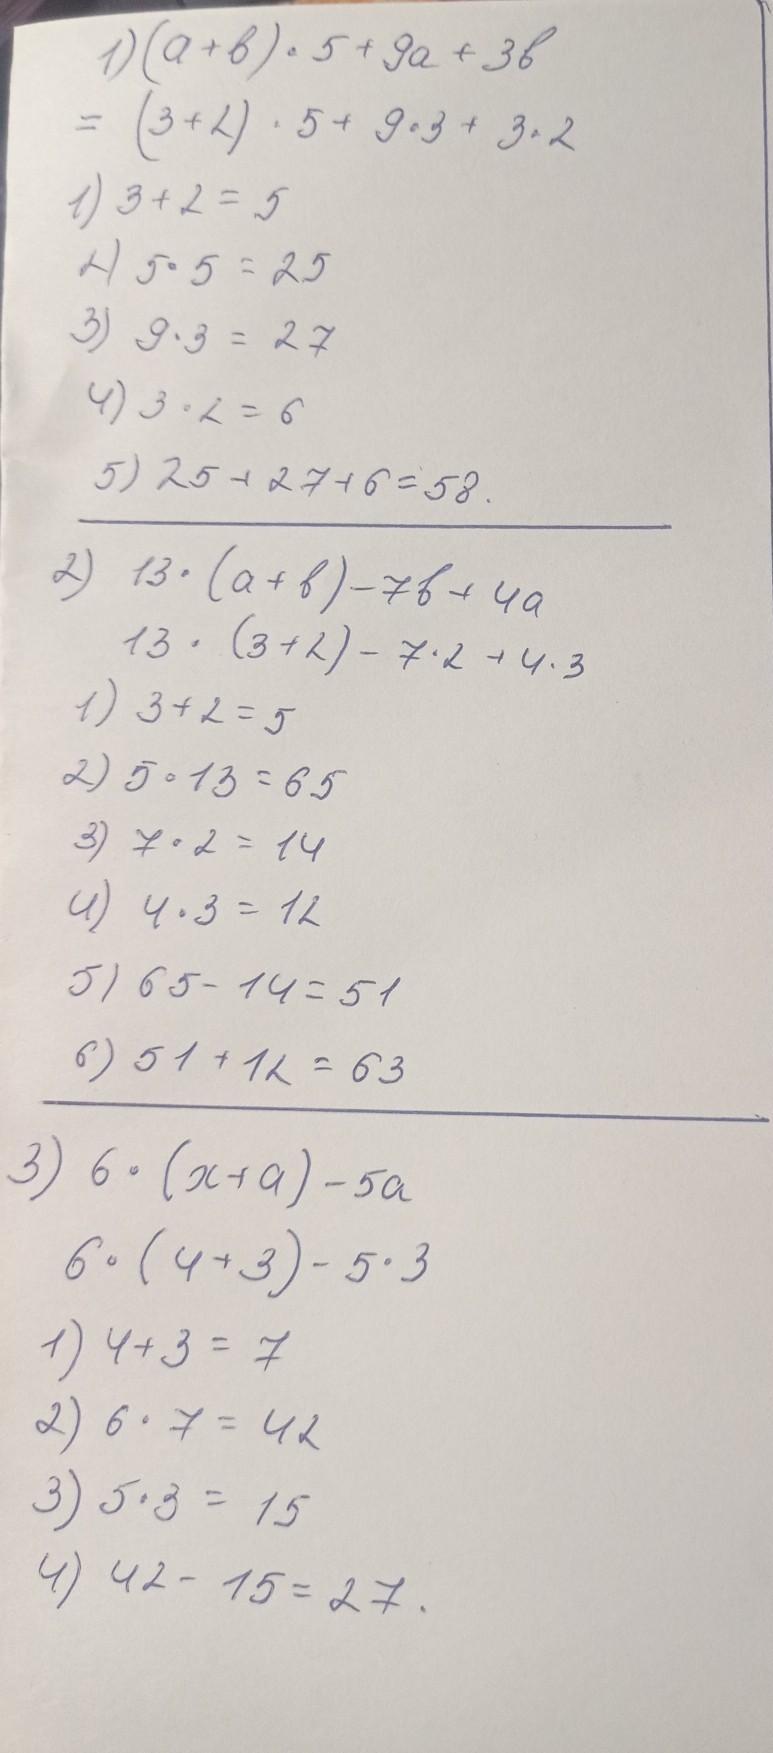 1) (a+b)·5+9a+3b
= (3+2)·5+9·3+3·2
1) 3+2=5
2) 5·5=25
3) 9·3=27
4) 3·2=6
5) 25+27+6=58.
2) 13·(a+b)-7b+4a
13·(3+2)-7·2+4·3
1) 3+2=5
2) 5·13=65
3) 7·2=14
4) 4·3=12
5) 65-14=51
6) 51+12=63
3) 6·(x+a)-5a
6·(4+3)-5·3
1) 4+3=7
2) 6·7=42
3) 5·3=15
4) 42-15=27.